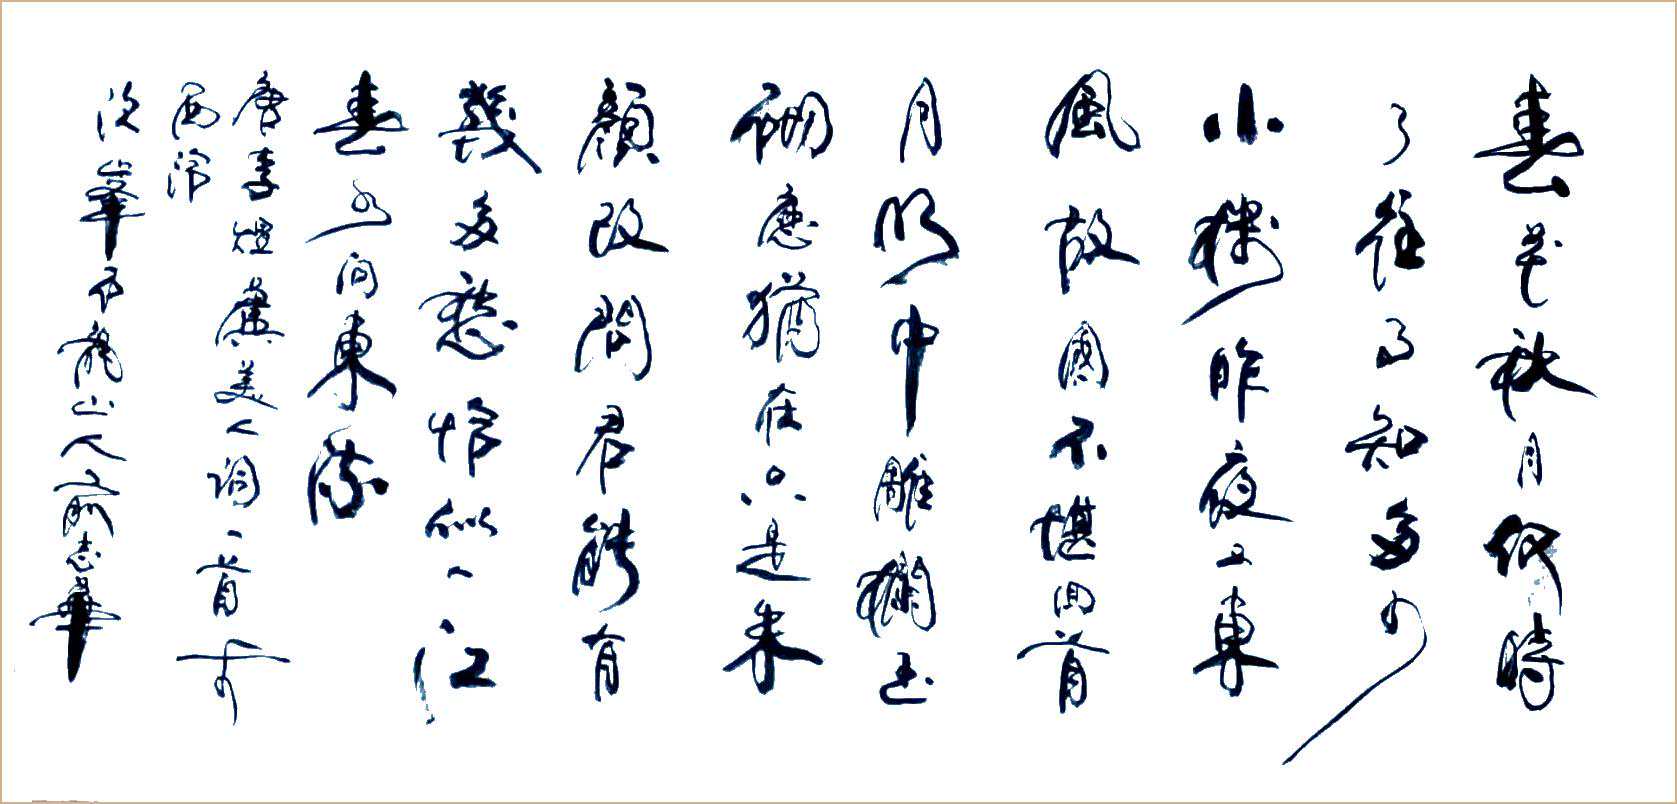 春花秋月何時
了往事知多少
小樓昨夜又東
風故國不堪回首
月明中雕欄玉
砌應猶在只是朱
顏改問君能有
幾多愁恰似一江
春水向東流
唐李煜虞美人詞一首
西泠
龍山人俞志華